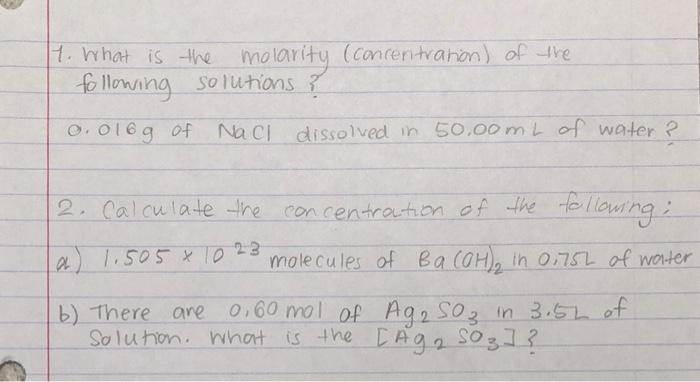 1. What is the molarity (concentration) of the
following solutions?
0.016g of NaCl dissolved in 50.00mL of water?
2. Calculate the concentration of the following:
a) 1.505 x 10²³ molecules of Ba(OH)₂ in 0.75L of water
b) There are 0.60 mol of Ag₂SO₃ in 3.5L of
Solution. What is the [Ag₂SO₃]?